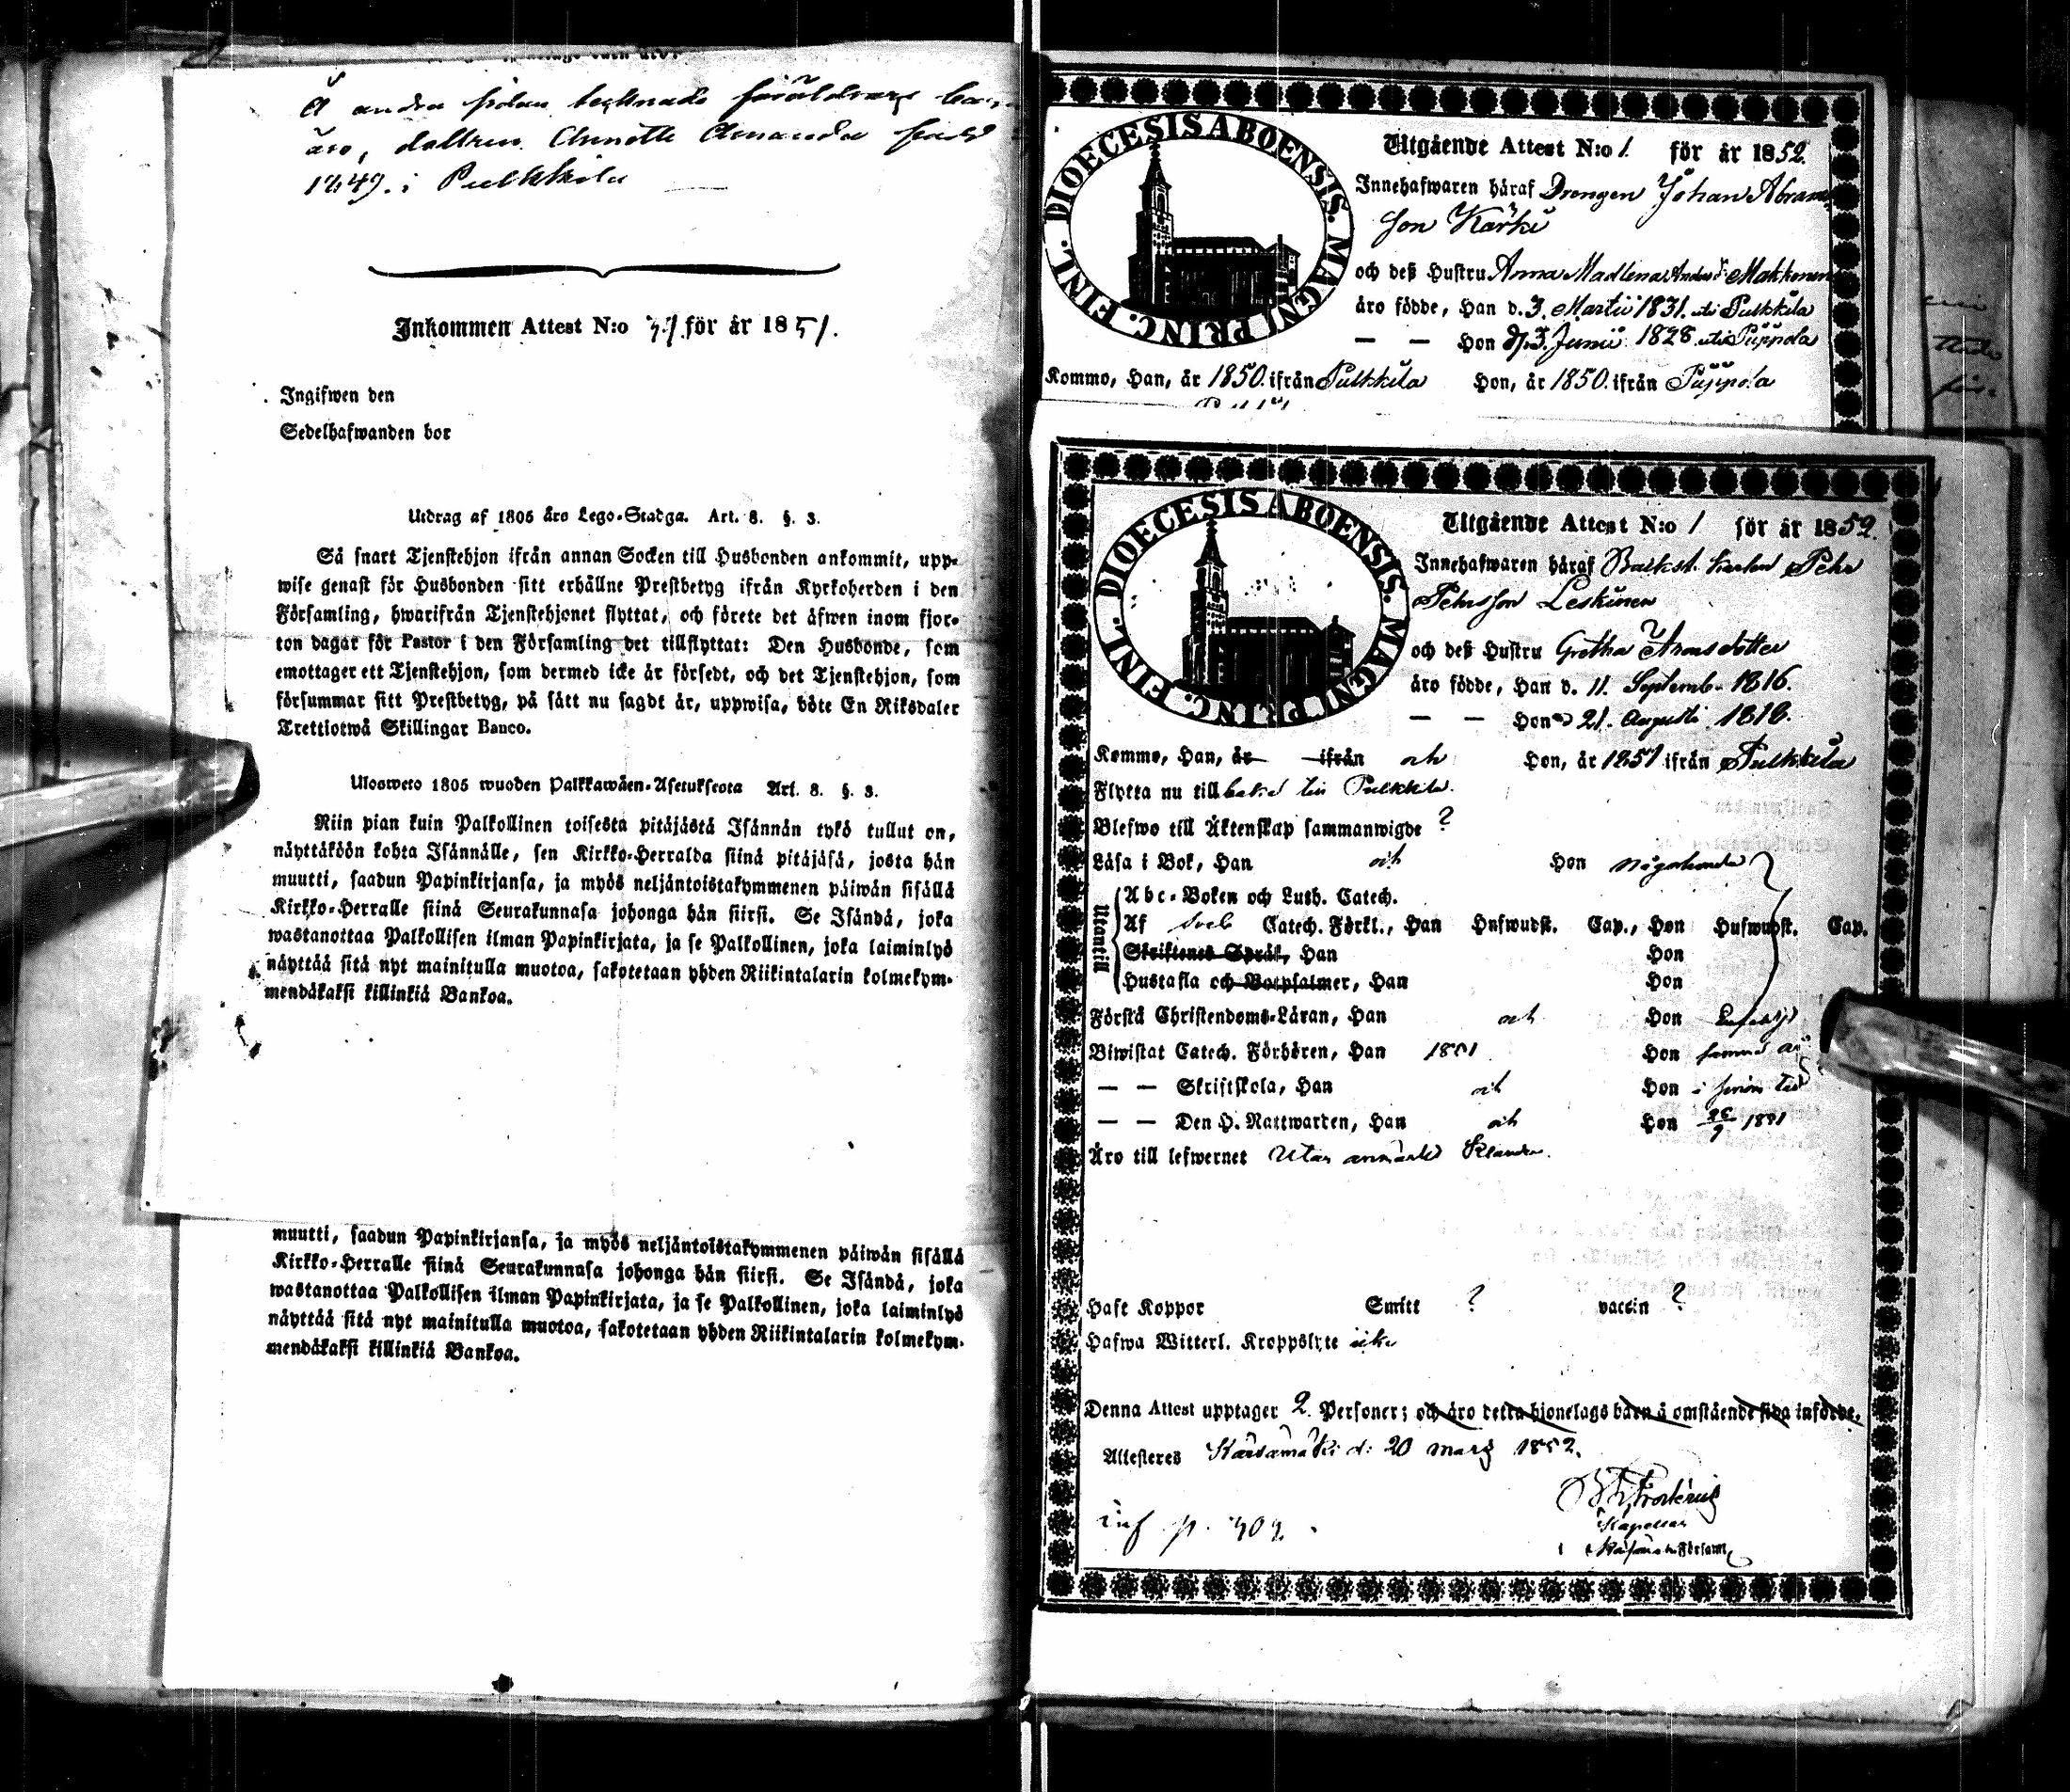 Å andra sidan tecknade föräldrars barn
äro, dottren Annette Amanda född
1849. i Pulkkila
Inkommen Attest N:o 41. för år 1851.
Ingifwen den
Sedelhafwanden bor
Utdrag af 1805 års Lego-Stadga. Art. 8. §. 3.
Så snart Tjenstehjon ifrån annan Socken till Husbonden ankommit, upp-
wise genast för Husbonden sitt erhållne Prestbetyg ifrån Kyrkoherden i den
Församling, hwarifrån Tjenstehjonet flyttat, och förete det äfwen inom fjor-
ton dagar för Pastor i den Församling det tillflyttat: Den Husbonde, som
emottager ett Tjenstehjon, som dermed icke är försedt, och det Tjenstehjon, som
försummar sitt Prestbetyg, på sätt nu sagdt är, uppwisa, böte En Riksdaler
Trettiotwå Skillingar Banco.
Ulosweto 1805 wuoden Palkkawäen-Asetuksesta Art. 8. §. 3.
Niin pian kuin Palkollinen toisesta pitäjästä Isännän tykö tullut on,
näyttäköön kohta Isännälle, sen Kirkko-Herralda siinä pitäjäsä, josta hän
muutti, saadun Papinkirjansa, ja myös neljäntoistakymmenen päiwän sisällä
Kirkko-Herralle siinä Seurakunnasa johonga hän siirsi. Se Isändä, joka
wastanottaa Palkollisen ilman Papinkirjata, ja se Palkollinen, joka laiminlyö
näyttää sitä nyt mainitulla muotoa, sakotetaan yhden Riikintalarin kolmekym-
mendäkaksi killinkiä Bankoa.
muutti, saadun Papinkirjansa, ja myös neljäntoistakymmenen päiwän sisällä
Kirkko-Herralle siinä Seurakunnasa johonga hän siirsi. Se Isändä, joka
wastanottaa Palkollisen ilman Papinkirjata, ja se Palkollinen, joka laiminlyö
näyttää sitä nyt mainitulla muotoa, sakotetaan yhden Riikintalarin kolmekym-
mendäkaksi killinkiä Bankoa.
DIOECESIS ABOENSIS. MAGNI PRINC. FINL.
Utgående Attest N:o 1. för år 1852.
Innehafwaren häraf Drengen Johan Abrams
son Kärki
och deß Hustru Anna Madlena Anders d. Makkonen
äro födde, Han d. 3. Martii 1831. uti Pulkkila
— — Hon d. 3. Junii 1828. uti Piippola
Kommo, Han, år 1850. ifrån Pulkkila Hon, år 1850. ifrån Piippola
DIOECESIS ABOENSIS. MAGNI PRINC. FINL.
Utgående Attest N:o 1 för år 1852.
Innehafwaren häraf Backst. karlen Pehr
Pehrsson Leskinen
och deß Hustru Gretha Aronsdotter
äro födde, Han d. 11. Septemb. 1816.
— — Hon d 21. Augusti 1818.
Kommo, Han, år ifrån och Hon, år 1851 ifrån Pulkkila
Flytta nu till baka till Pulkkila.
Blefwo till Äktenskap sammanwigde ?
Läsa i Bok, Han och Hon någorlunda
Utantill
Abc-Boken och Luth. Catech.
Af Sveb Catech. Förkl., Han Hufwudst. Cap., Hon Hufwudst. Cap.
Skriftenes Språk, Han Hon
Hustafla och Botpsalmer, Han Hon
Förstå Christendoms-Läran, Han och Hon
Biwistat Catech. Förhören, Han 1851 Hon samma år
— — Skriftskola, Han och Hon i sinom tid
— — Den H. Nattwarden, Han och Hon 1851
Äro till lefwernet utan anmärkt klander.
Haft Koppor Smitt ? vaccin ?
Hafwa Witterl. Kroppslyte icke
Denna Attest upptager 2. Personer; och äro detta hjonelags barn å omstående sida införde.
Attesteres Kärsämäki d: 20 mars 1852.
Kapellan
i Församl.
inf. p. 409.